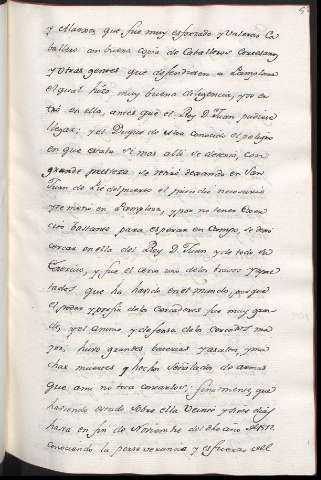 y Marques que fue muy esforzado y valeroso Ca
ballero con buena copia de Caballeros Cortesanos
y otras gentes que defendiesen a Pamplona
el qual hizo muy buena deligencia, y se en
tró en ella, antes que el Rey D. Juan pudiese
llegar; y el Duque de Alva conocido el peligro
en que estaba si mas alli se detenia, con
grande presteza se retiró dexando en San
Juan de Pie del puerto el presidio necesario
y se metió en Pamplona, y por no tener Exer
cito bastante para esperar en Campo, se dexó
cercar en ella del Rey D. Juan y de todo su
Exercito, y fue el cerco uno de los bravos y apre
tados que ha havido en el mundo, porque
el poder y porfia de los cercadores fue muy gran
de, y el animo y defensa de los cercados ma
yor; huvo grandes baterias y asaltos, y mu
chas muertes y hechos señalados de armas
que aqui no toca contarlos; finalmente, que
haviendo estado sobre ella veinte y siete dias
hasta en fin de Noviembre del dho año de 1512.
conociendo la perseverancia y esfuerzo del